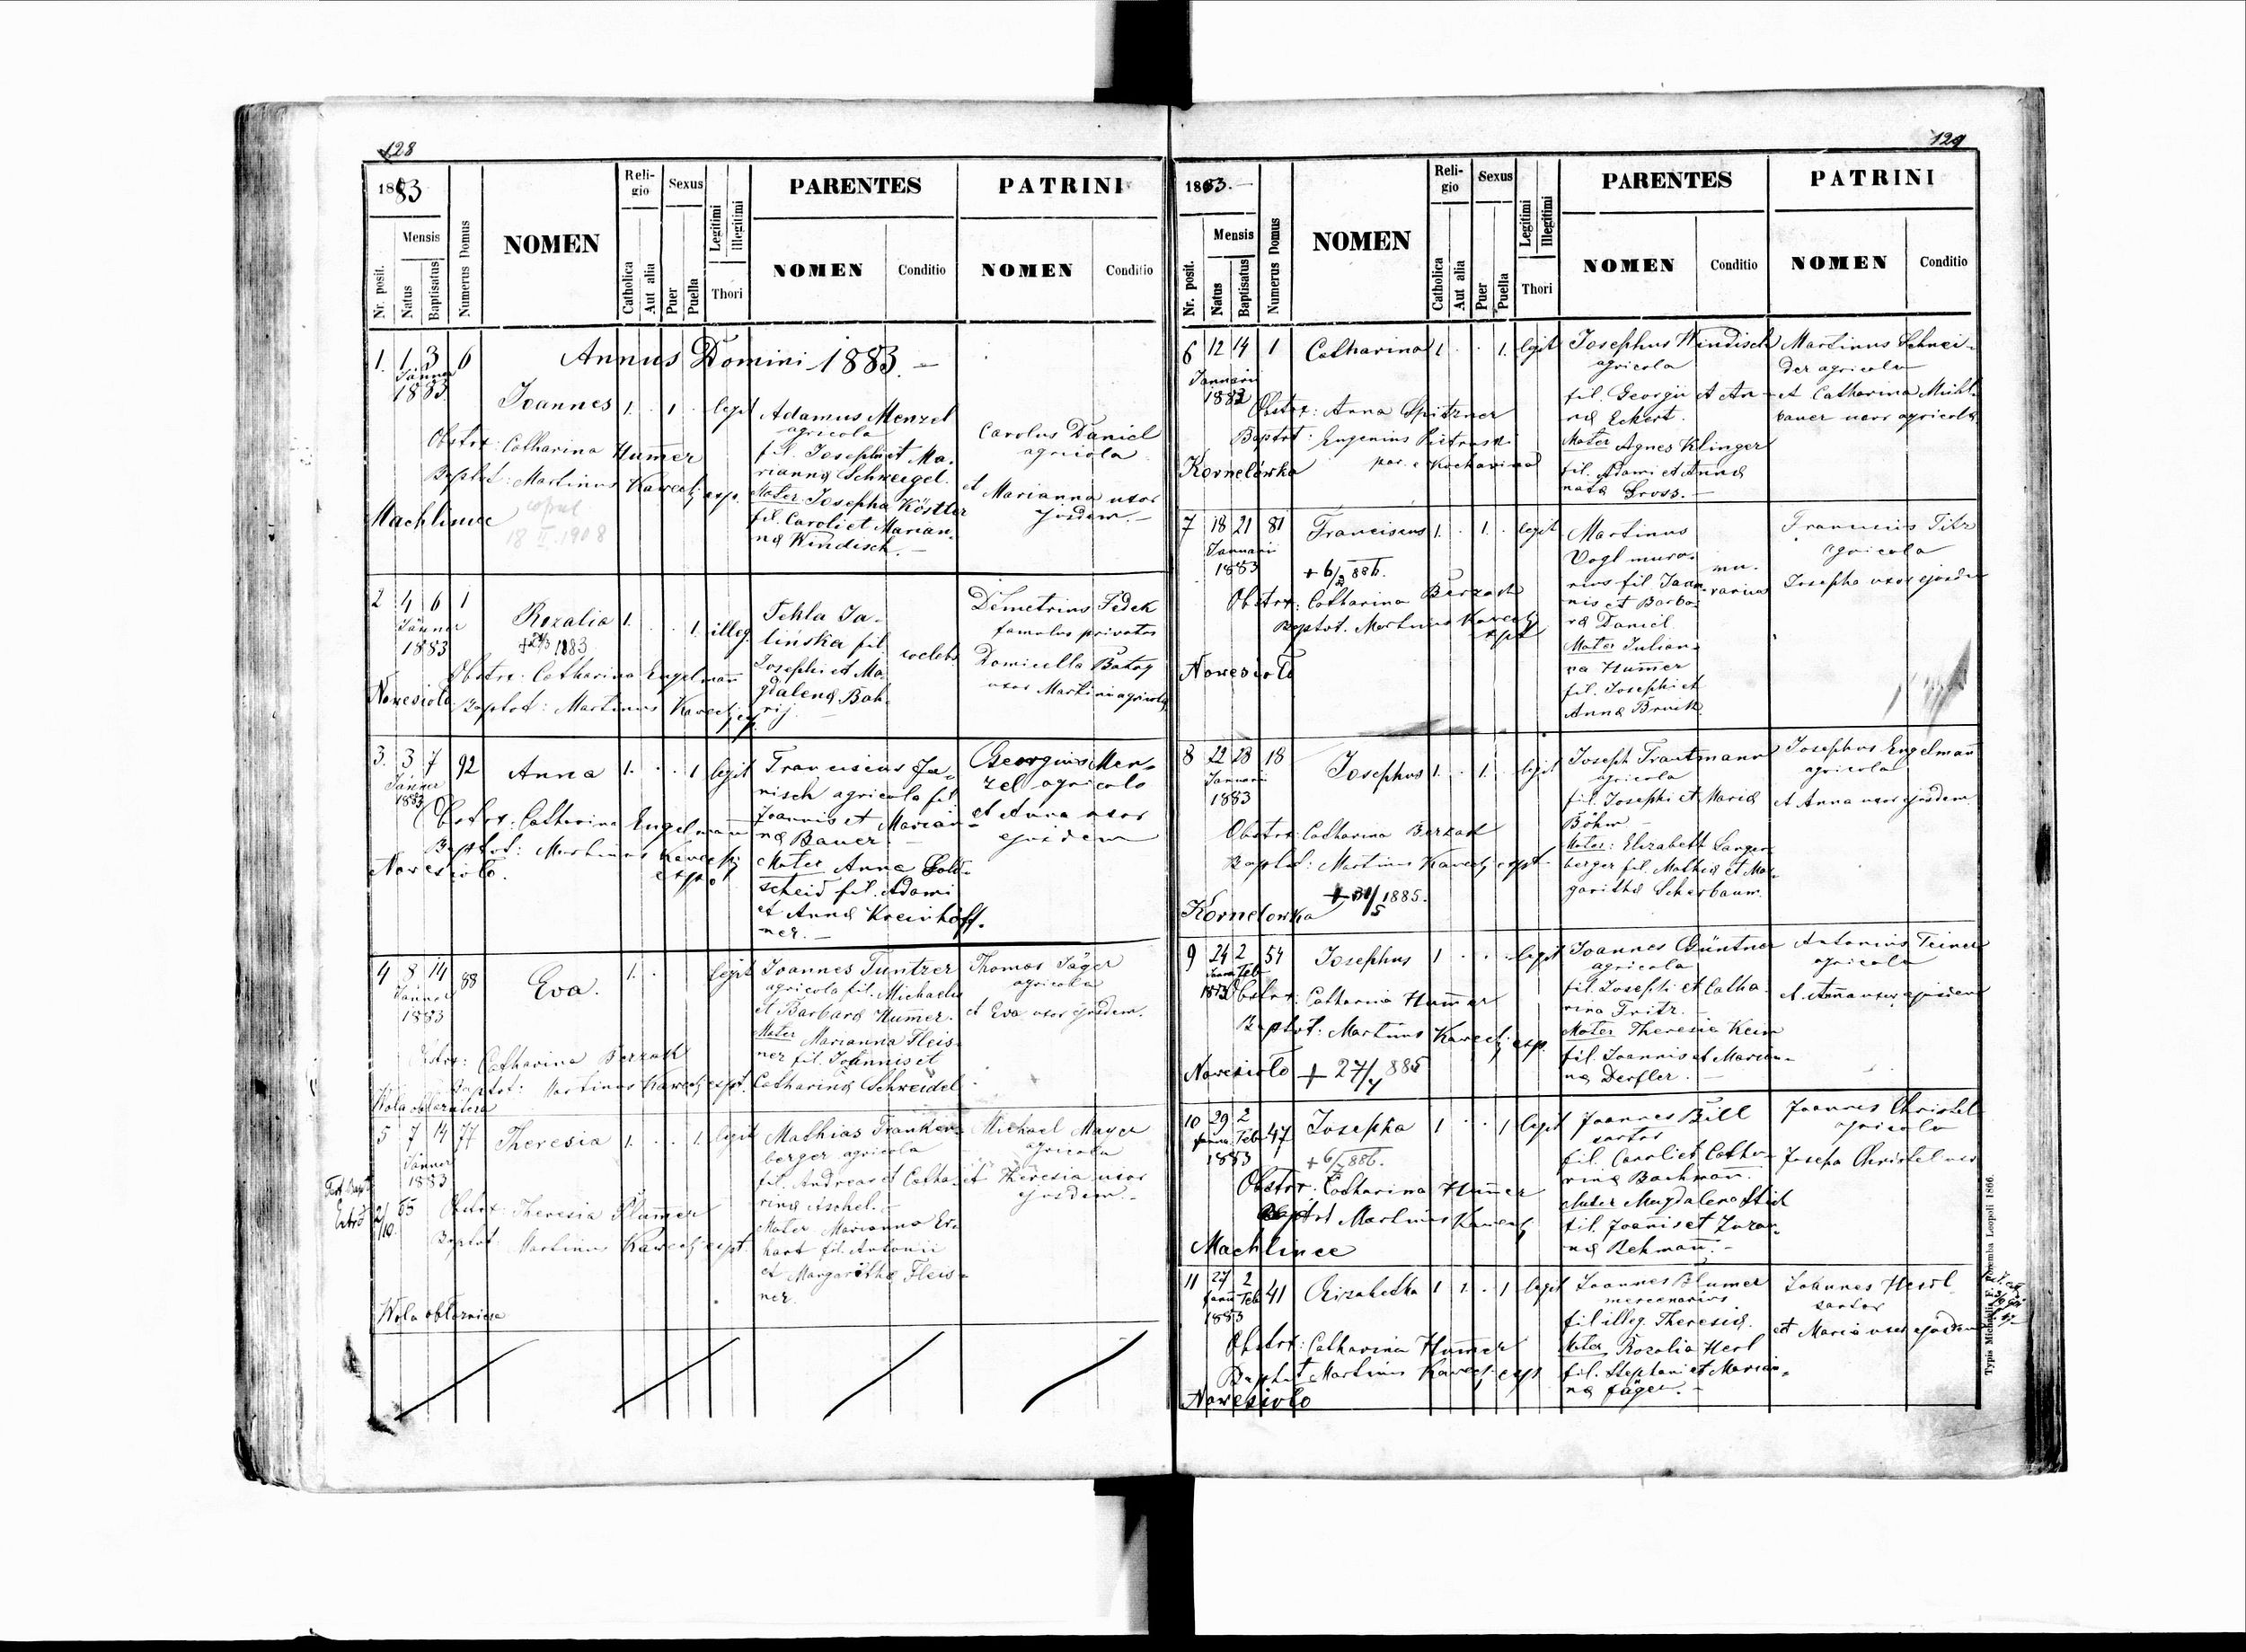 128
1883
Nr. posit.
Mensis
Natus
Baptisatus
Numerus Domus
NOMEN
Religio
Catholica
Aut alia
Sexus
Puer
Puella
Legitimi
Illegitimi
Thori
PARENTES
NOMEN
Conditio
PATRINI
NOMEN
Conditio
Annus Domini 1883.
1. 1 3 6
Jänner
1883
Joannes 1. 1 legit
Obstrx: Catharina Hum̄er
Baptst: Martinus Kawecki exp.
Machlince
copul.
18 II. 1908
Adamus Menzel
agricola
fil. Josephi et Ma-
rianna Schweigel.
Mater: Josepha Köstler
fil. Caroli et Marian-
na Windisch.
Carolus Daniel
agricola
et Marianna uxor
ejusdem.
2 4 6 1
Jänner
1883
Rozalia 1. 1 illeg.
1883
Obstrx: Catharina Engelman̄
Nowesiolo
Baptst: Martinus Kawecki exp.
Tekla Ja-
lińska fil.
Josephi et Ma-
gdalena Bah-
rij.
coelebs
Demetrius Sedek
famulus privatus
Domicella Batog
uxor Martini agricola
3. 3 7 92
Jänner
1883
Anna 1. 1 legit
Obstrx: Catharina Engelmann
Baptst: Martinus Kawecki
expst
Nowesiolo.
Franciscus Ja-
nisch agricola fil.
Joannis et Marian-
na Bauer.
Mater Anna Gold-
scheid fil. Adami
et Anna Kreinhöff-
ner.
Georgius Men-
zel agricola
et Anna uxor
ejusdem
4 8 14 88
Jänner
1883
Eva. 1. legit
Obstrx: Catharina Berzack
Baptst: Martinus Kawecki expt.
Joannes Tuntzer
agricola fil. Michaelis
et Barbara Hum̄er.
Mater Marianna Fleis-
ner fil. Joannis et
Catharina Schweidel
Thomas Jäger
agricola
et Eva uxor ejusdem.
5 7 14 77
Jänner
1883
Theresia 1. 1. legit
Obstrx: Theresia Plum̄er
Baptst: Martinus Kawecki expt.
Mathias Franken-
berger agricola
fil. Andreas et Catha-
rina Aschel.
Mater Marianna Er-
hart fil. Antonii
et Margaritha Fleis-
ner.
Michael Mayer
agricola
et Theresia uxor
ejusdem.
129
1883.
Nr. posit.
Mensis
Natus
Baptisatus
Numerus Domus
NOMEN
Religio
Catholica
Aut alia
Sexus
Puer
Puella
Legitimi
Illegitimi
Thori
PARENTES
NOMEN
Conditio
PATRINI
NOMEN
Conditio
6 12 14 1
Januarii
1883
Catharina 1 1. legit
Obstrx: Anna Spitzner
Baptst: Eugenius Pietruski
Kornelówka
Josephus Windisch
agricola
fil. Georgii et An-
na Eckert.
Mater Agnes Klinger
fil. Adami et Anna
nata Gross.
Martinus Schnei-
der agricola
et Catharina Mühl-
bauer uxor agricola
7 18 21 81
Januarii
1883
Franciscus 1. 1. legit
Obstrx: Catharina Berzack
Baptst. Martinus Kawecki
expt
Nowesiolo
Martinus
Vogl mura-
rius fil Joan-
nis et Barba-
ra Daniel.
Mater Julian-
na Hum̄er
fil. Josephi et
Anna Bruck.
mu-
rarius
Franciscus Titz
agricola
Josepha uxor ejusdem
8 22 28 18
Januarii
1883
Josephus 1. 1. legit
Obstrx: Catharina Berzack
Baptst: Martinus Kawecki expt.
+ 31/5 1885.
Kornelowka
Joseph Trautmann
agricola
fil. Josephi et Maria
Böhm
Mater: Elizabeth Langen-
berger fil. Mathia et Mar-
garitha Scherbaum.
Josephus Engelman̄
agricola
et Anna uxor ejusdem.
9 24 2 54
Feb
1883
Josephus 1 legit
Obstrx: Catharina Hum̄er
Baptst: Martinus Kawecki exp.
Nowesiolo + 27/4 885
Joannes Güntner
agricola
fil. Josephi et Catha-
rina Fritz.
Mater Theresia Keim
fil. Joannis et Marian-
na Derfler.
Antonius Teiner
agricola
et Anna uxor ejusdem
10 29 2 47
Feb
1883
Josepha 1 1 legit
Obstrx: Catharina Hum̄er
Baptst Martinus Kawecki
Machlince
Joannes Bill
sartor
fil. Caroli et Catha-
rina Bachman̄.
Mater Magdalena Stich
fil. Joannis et Zuzan-
na Rehman̄.
Joannes Christel
agricola
Josepa Christel uxor
11 27 2 41
Feb
1883
Elizabetha 1 1. 1 legit
Obstrx: Catharina Hum̄er
Baptst Martinus Kawecki exp
Nowesiolo
Joannes Blumer
mercenarius
fil illeg. Theresia.
Mater Rozalia Herl
fil. Stephani et Marian-
na Jäger.
Johannes Hesol
sartor
et Maria uxor ejusdem
Typis Michaelis F. Poremba Leopoli 1866.